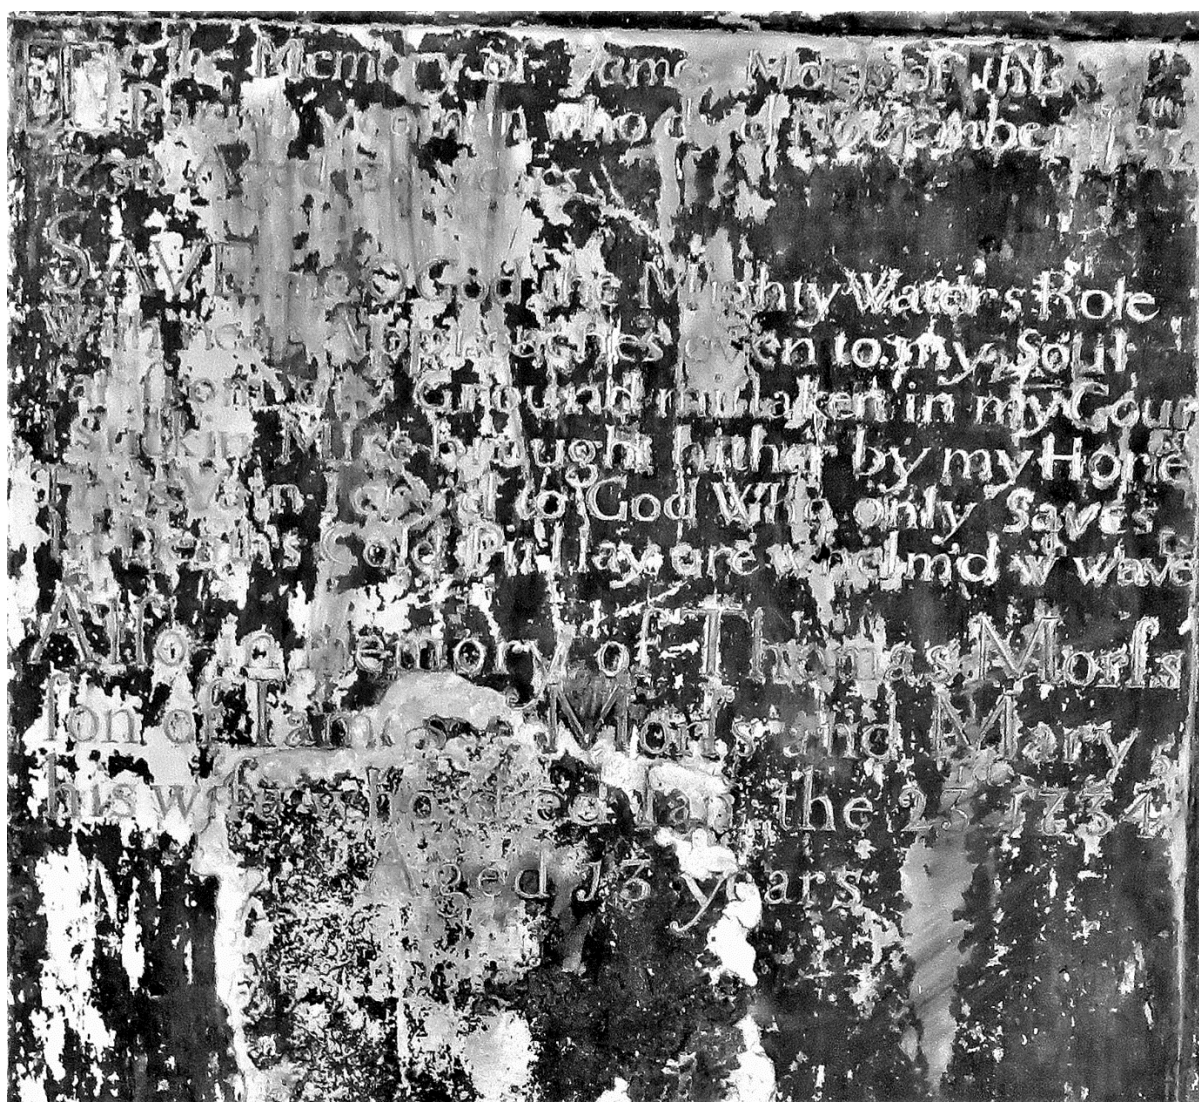 To the Memory of James Morss of this
Parish yeoman who died November
SAVE me O God the Mighty Waters Role
With near Approaches even to my Soul
Far from dry Ground mistaken in my Cour
I stick in Mire brought hither by my Horse
Thus vain I cryd to God Who only Saves
In Deaths Cold Pit I lay ore whelmd w wave
Alſo in memory of Thomas Morſs
ſon of Iames Morſs and Mary
his wife who died Ian the 23 1734
Aged 13 years